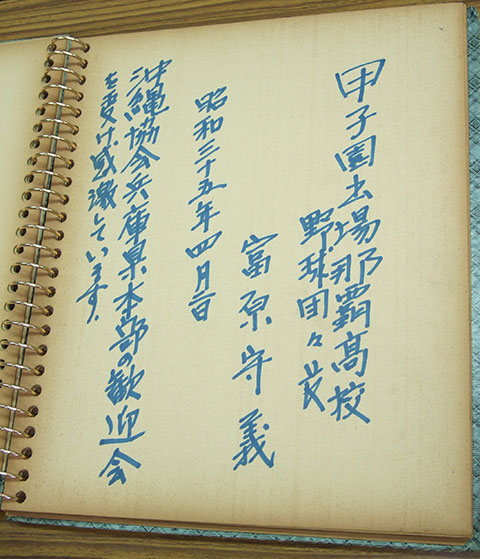 甲子園出場那覇高校
野球団々長
富原守義
昭和三十五年四月二日
沖縄協会兵庫県本部の歓迎会
を受け感激しています.